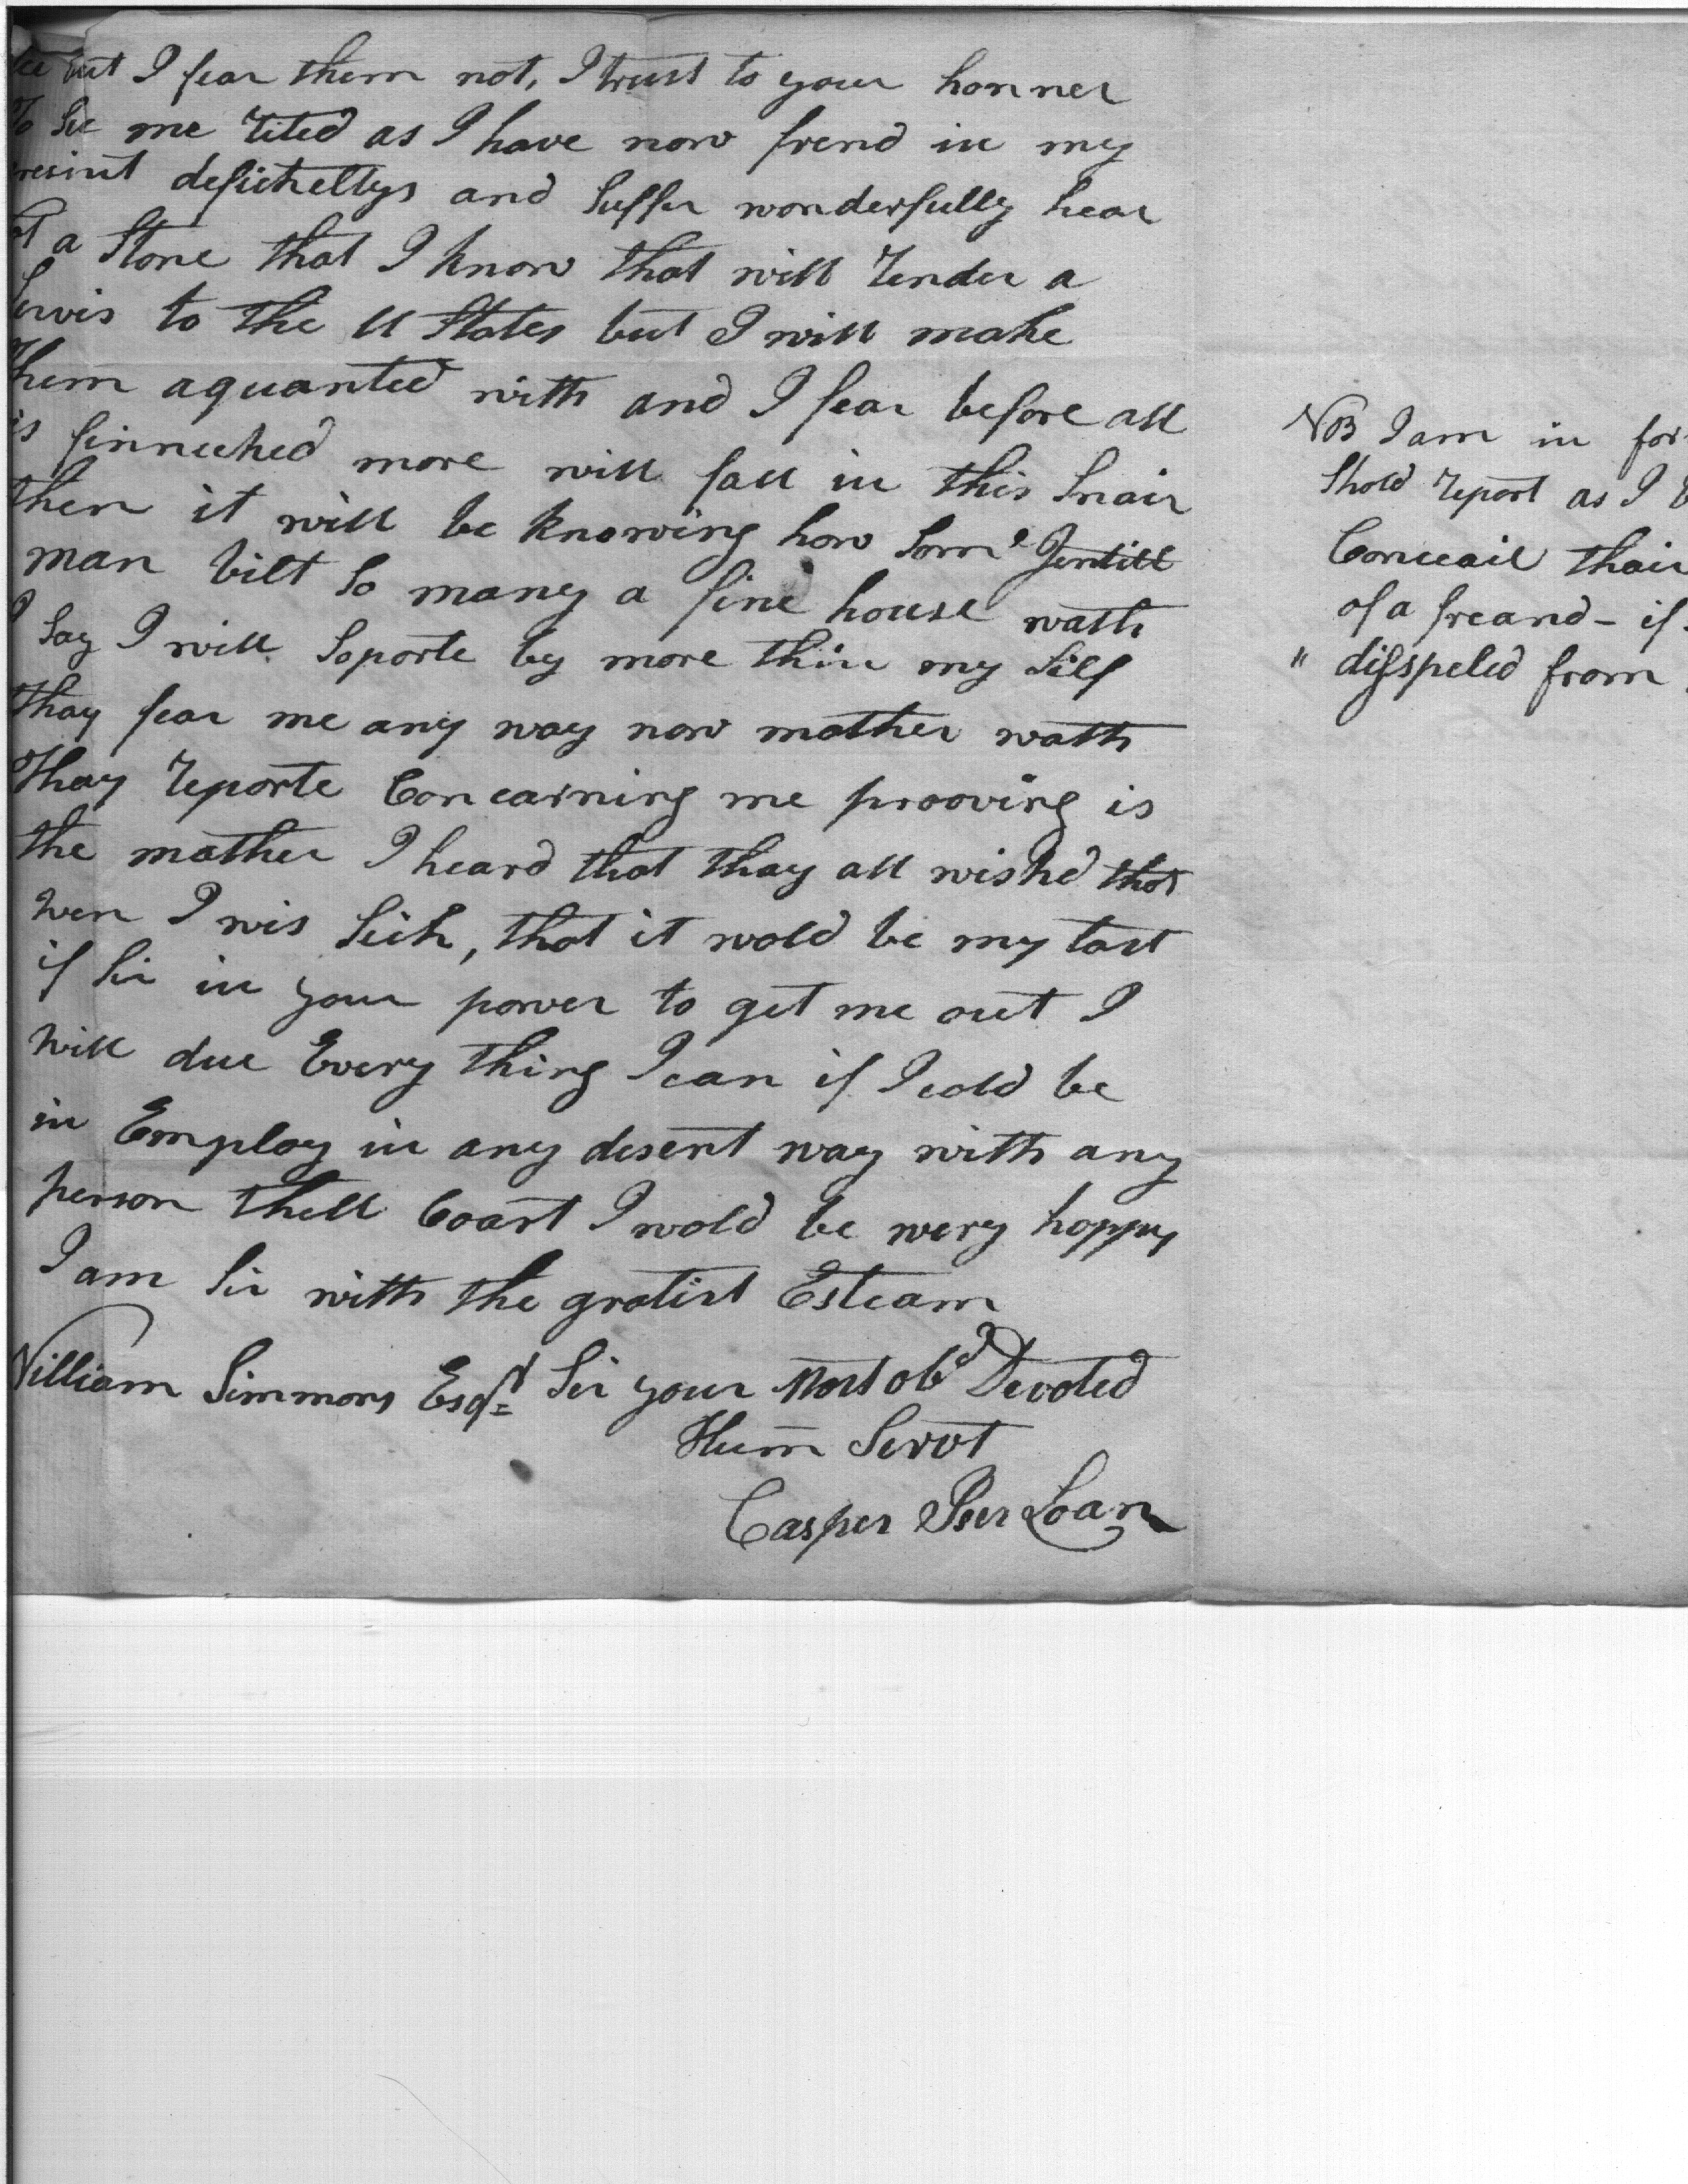 but I fear them not, I trust to your honner
To See me rited as I have now frend in my
presint defichelltys and Suffer wonderfully hear
not a Stone that I know that will render a
Servis to the U States but I will make
them aquanted with and I fear before all
is finneched more will fall in this Snair
then it will be knowing how Some Jentill
man bilt So many a fine house wath
I Say I will Soporte by more thin my Self
thay fear me any way now mather wath
thay reporte Concarning me prooving is
the mather I heard that thay all wishd that
wen I wis Sick, that it wold be my last
if Sir in your power to get me out I
will due Every thing I can if I cold be
in Employ in any desent way with any
person thell Coart I wold be wery happy
I am Sir with the gratist Esteam
William Simmons Esqr Sir your Most obd Devoted
Hum Servt
Casper Iser Loan
NB I am in for
Shold report as I
Conceail thair
of a freand - if
" disspeled from